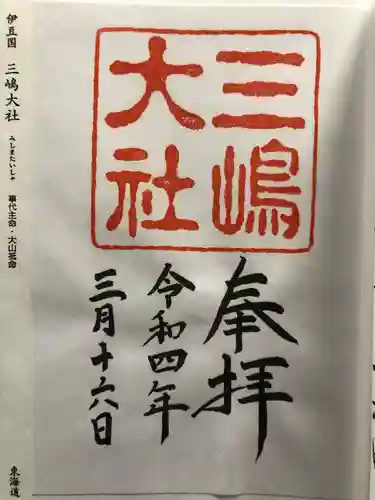 三嶋
大社
奉拝
令和四年
三月十六日
伊豆国 三嶋大社 みしまたいしゃ 事代主命・大山祇命
東海道